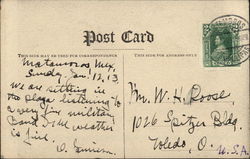 Post Card
THIS SIDE MAY BE USED FOR CORRESPONDENCE
THIS SIDE FOR ADDRESS ONLY
Matamoros Mex
Sunday Jan. 12, 13.
We are sitting in
the plaza listening to
a very fine military
Band. The weather
is fine.
Mr. W. H. Roose,
1026 Spitzer Bldg.
Toledo, O.
U.S.A.